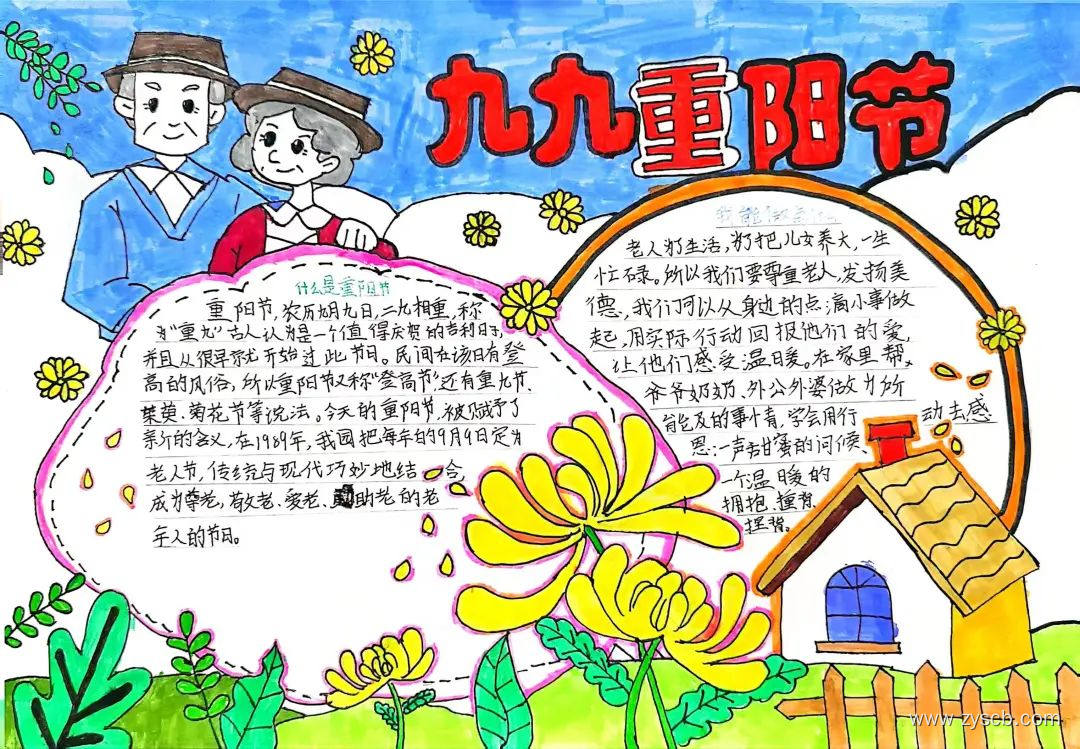 九九重阳节
什么是重阳节
重阳节,农历九月九日,二九相重,称
为"重九"古人认为是一个值得庆贺的吉利日子,
并且从很早就开始过此节日。民间在该日有登
高的风俗,所以重阳节又称"登高节"还有重九节、
茱萸、菊花节等说法。今天的重阳节,被赋予了
新的含义,在1989年,我国把每年的9月9日定为
老人节,传统与现代巧妙地结合,
成为尊老、敬老、爱老、助老的老
年人的节日。
我能做点
老人为生活,为把儿女养大,一生
忙碌。所以我们要尊重老人,发扬美
德,我们可以从身边的点滴小事做
起,用实际行动回报他们的爱,
让他们感受温暖。在家里帮
爷爷奶奶、外公外婆做力所
能及的事情,学会用行动去感
恩:一声甜蜜的问候、
一个温暖的
拥抱、捶背、
www.zyscb.com